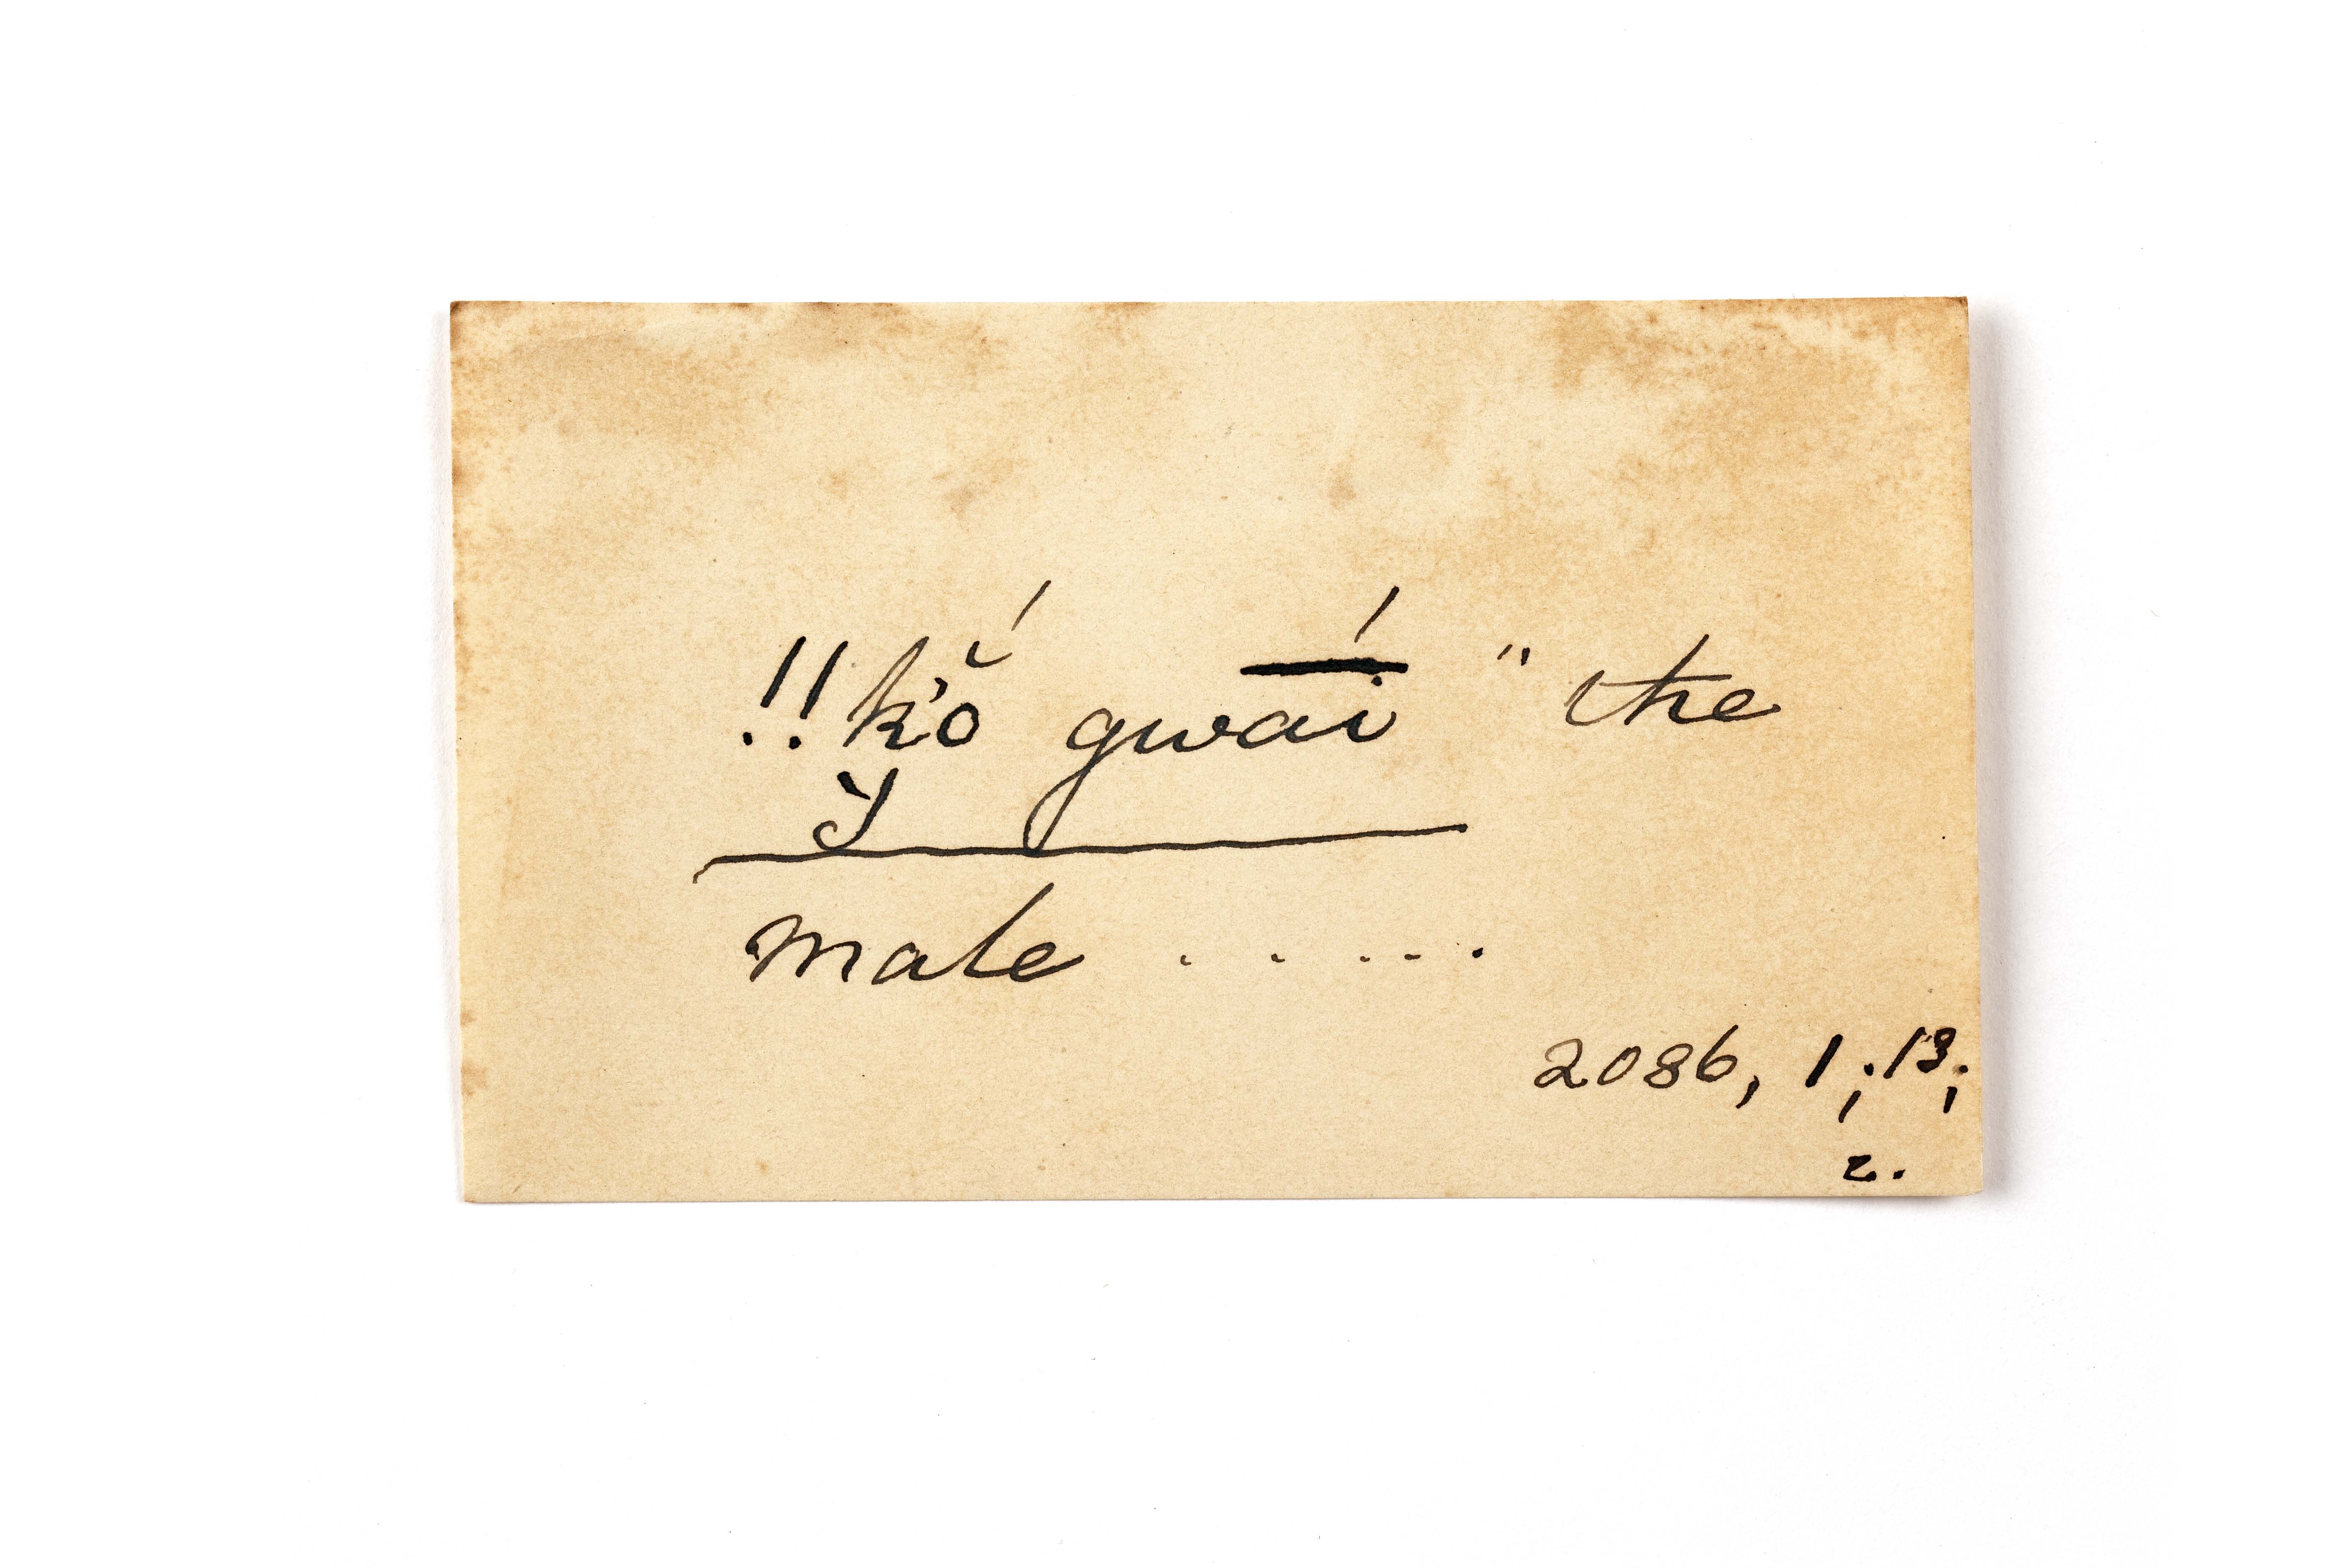 !!k'ŏ́ gwa͞í " the
male . . . . . .
2086, 1; 13;
2.